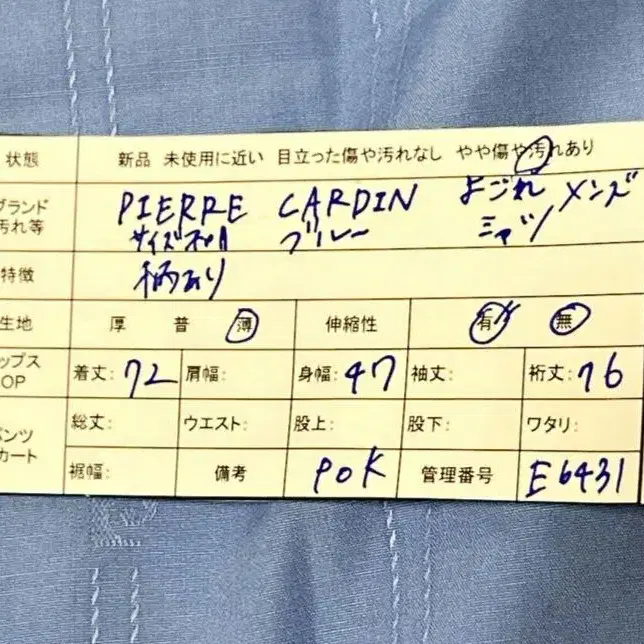 状態 新品 未使用に近い 目立った傷や汚れなし やや傷や汚れあり
ブランド PIERRE CARDIN よごれ メンズ
汚れ等 ブルー シャツ
特徴 柄あり
生地 厚 普 薄 伸縮性 有 無
ップス 着丈: 72 肩幅: 身幅: 47 袖丈: 裄丈: 76
OP
総丈: ウエスト: 股上: 股下: ワタリ:
パンツ
カート
裾幅: 備考 POK 管理番号 E6431